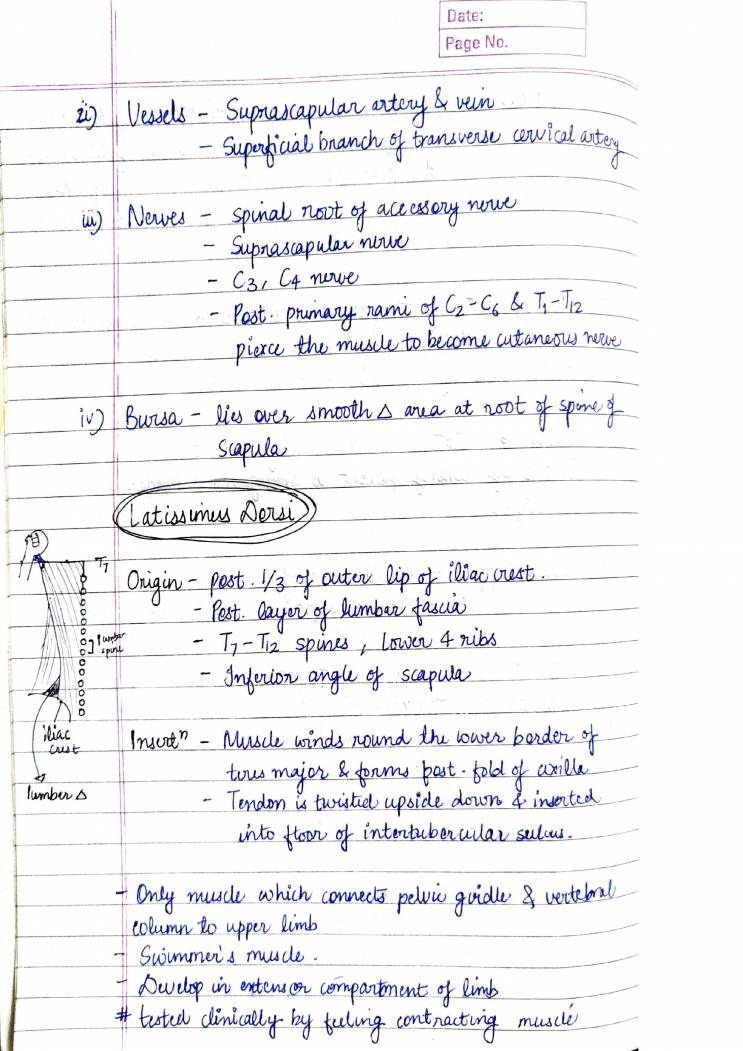 Date:
Page No.
ii) Vessels - Suprascapular artery & vein
- Superficial branch of transverse cervical artery
iii) Nerves - spinal root of accessory nerve
- Suprascapular nerve
- C3, C4 nerve
- Post. primary rami of C2-C6 & T1-T12
pierce the muscle to become cutaneous nerve
iv) Bursa - lies over smooth Δ area at root of spine of
Scapula
Latissimus Dorsi
T7
Origin - post. 1/3 of outer lip of iliac crest.
- Post. layer of lumbar fascia
lumbar
spine
- T7-T12 spines, Lower 4 ribs
- Inferior angle of scapula
iliac
crest
lumber Δ
Insertⁿ - Muscle winds round the lower border of
teres major & forms post. fold of axilla
- Tendon is twisted upside down & inserted
into floor of intertubercular sulcus.
- Only muscle which connects pelvic girdle & vertebral
column to upper limb
- Swimmer's muscle.
- Develop in extensor compartment of limb
# tested clinically by feeling contracting muscle